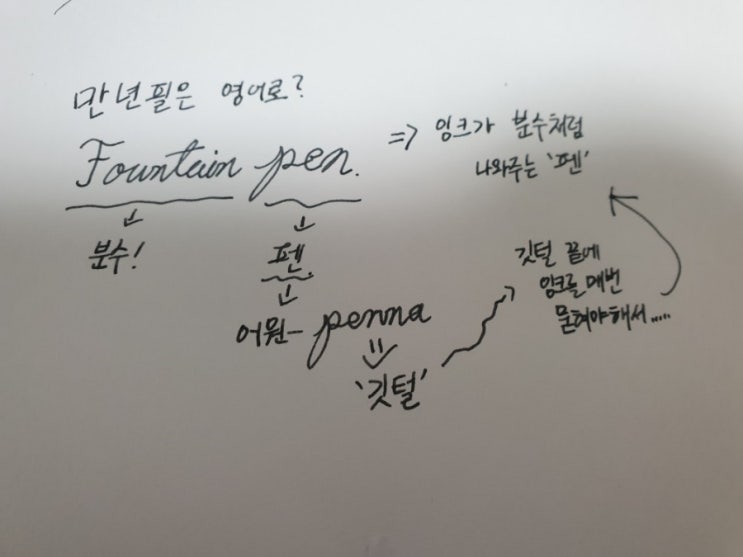 만년필은 영어로?
Fountain pen.
⇒ 잉크가 분수처럼
나와주는 '펜'
분수!
펜
어원- penna
'깃털'
깃털 끝에
잉크를 매번
묻혀야해서.....